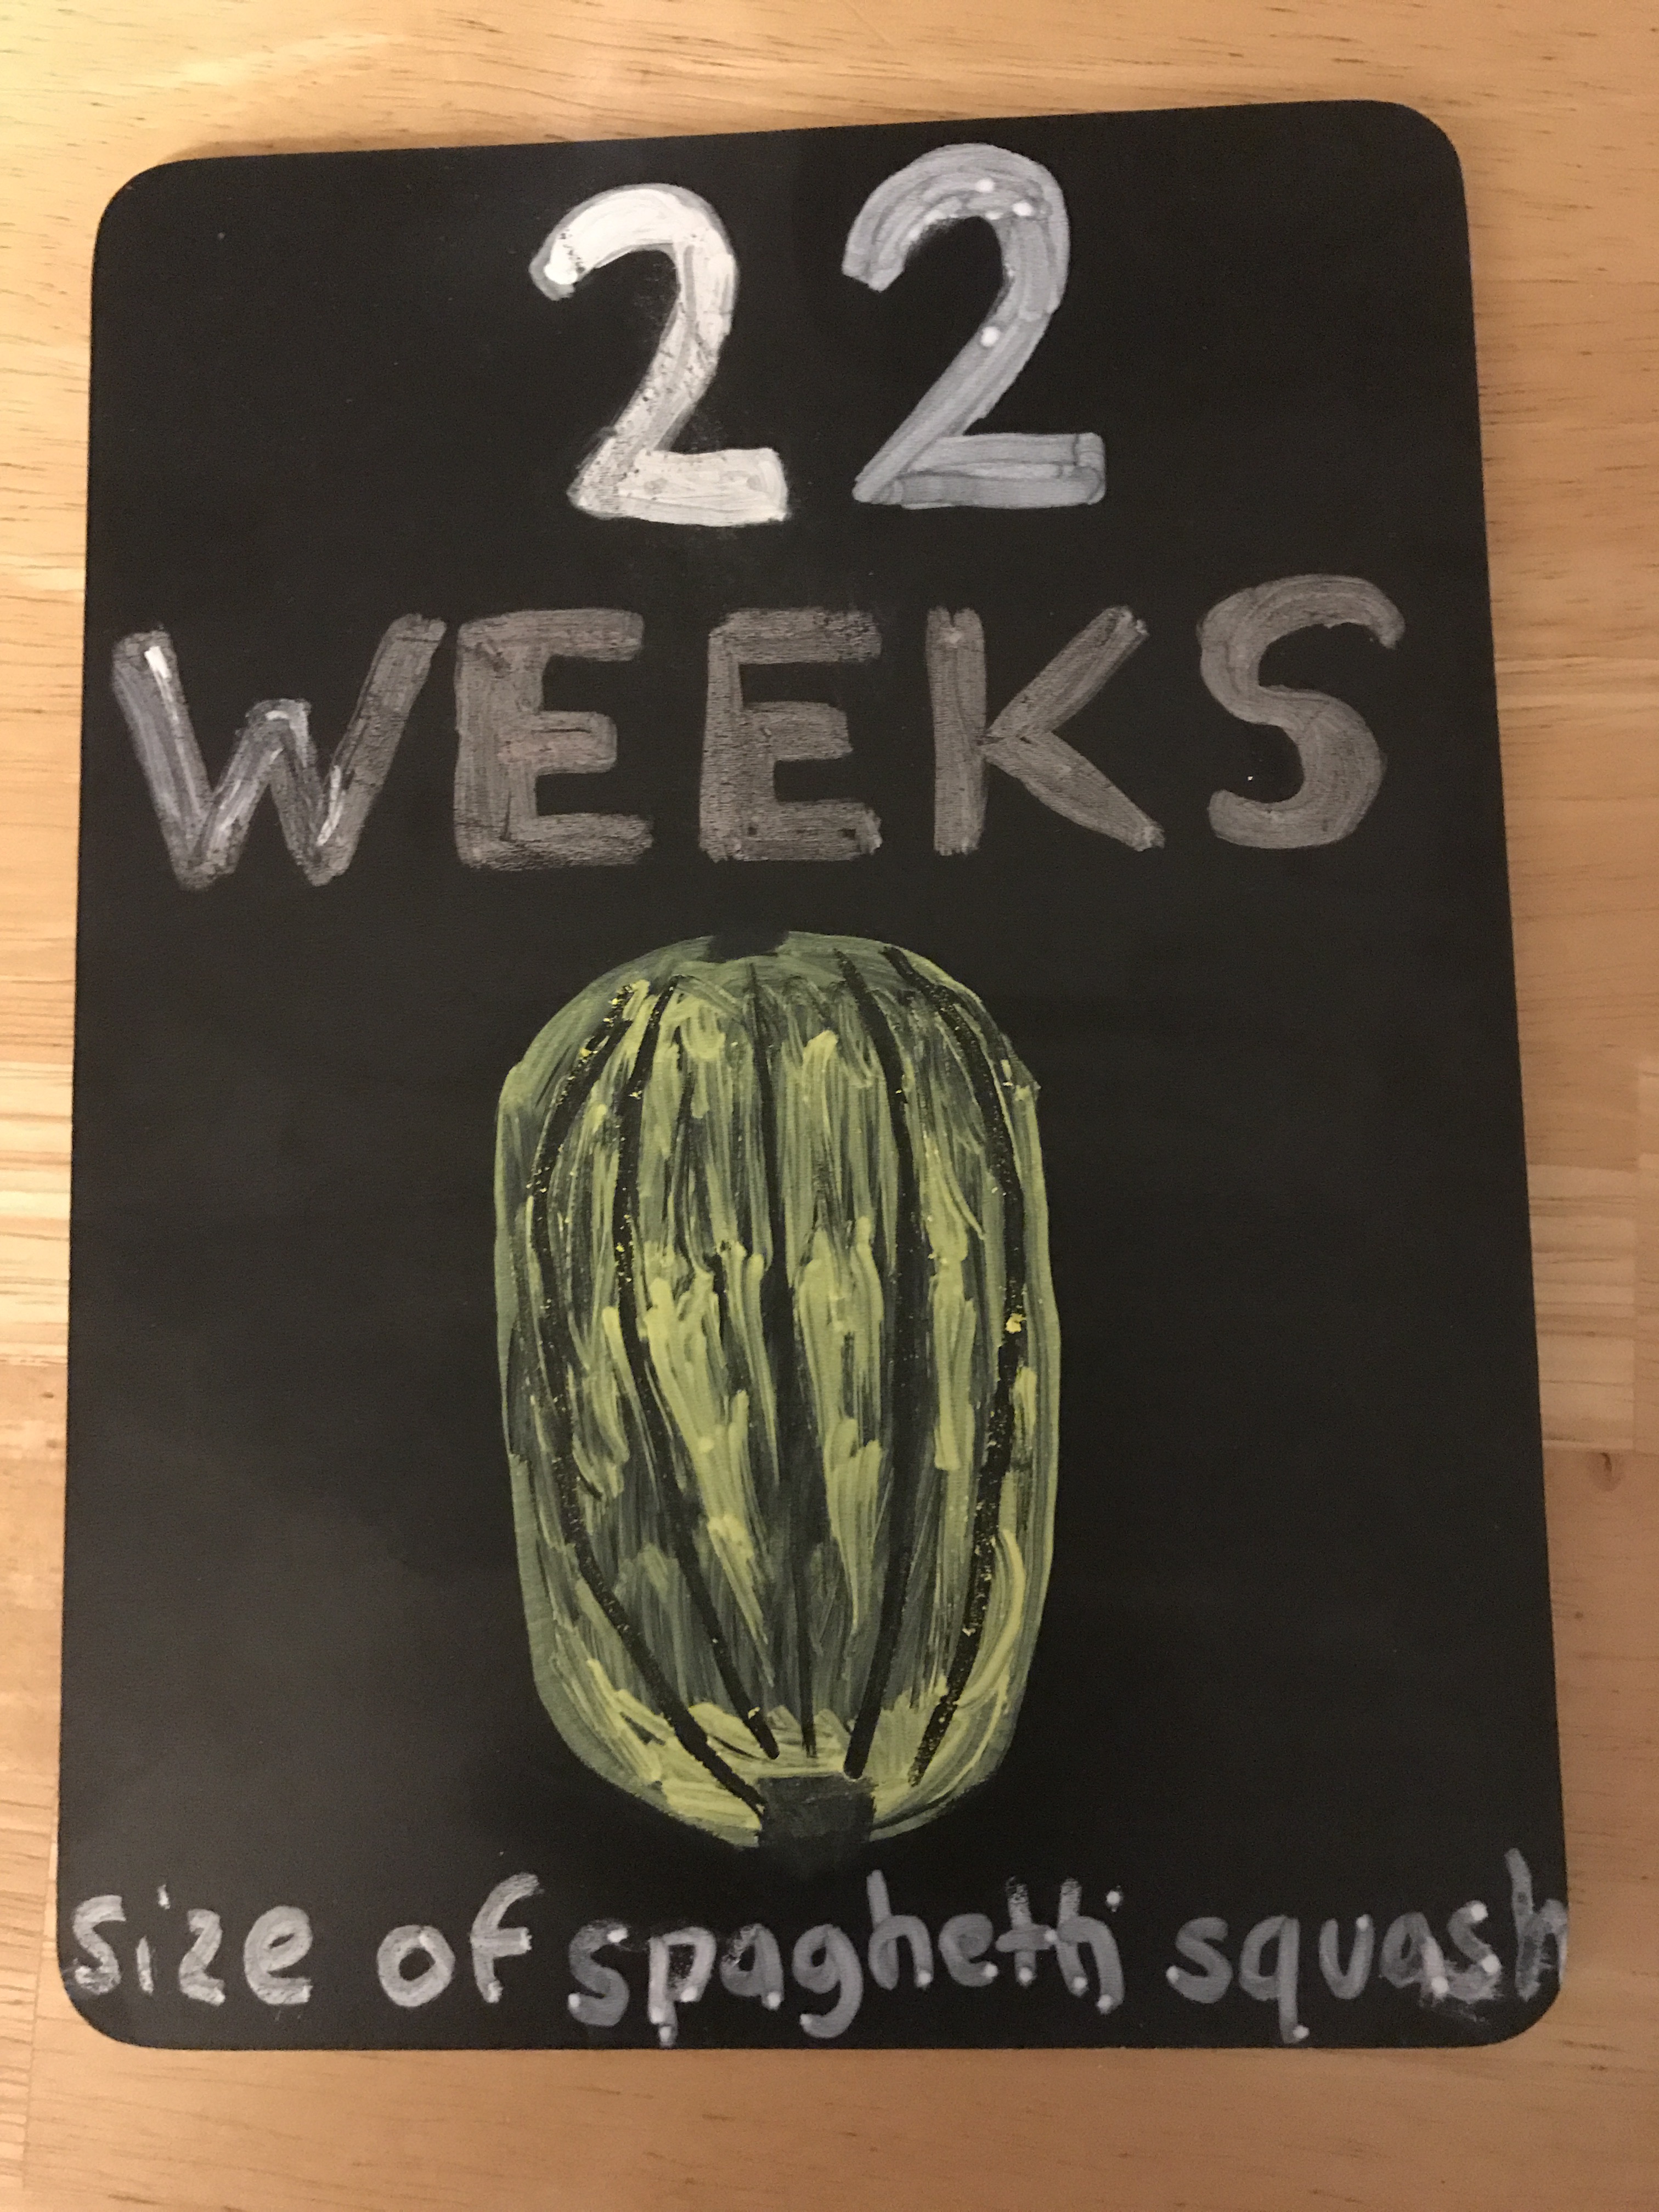 22
WEEKS
size of spaghetti squash